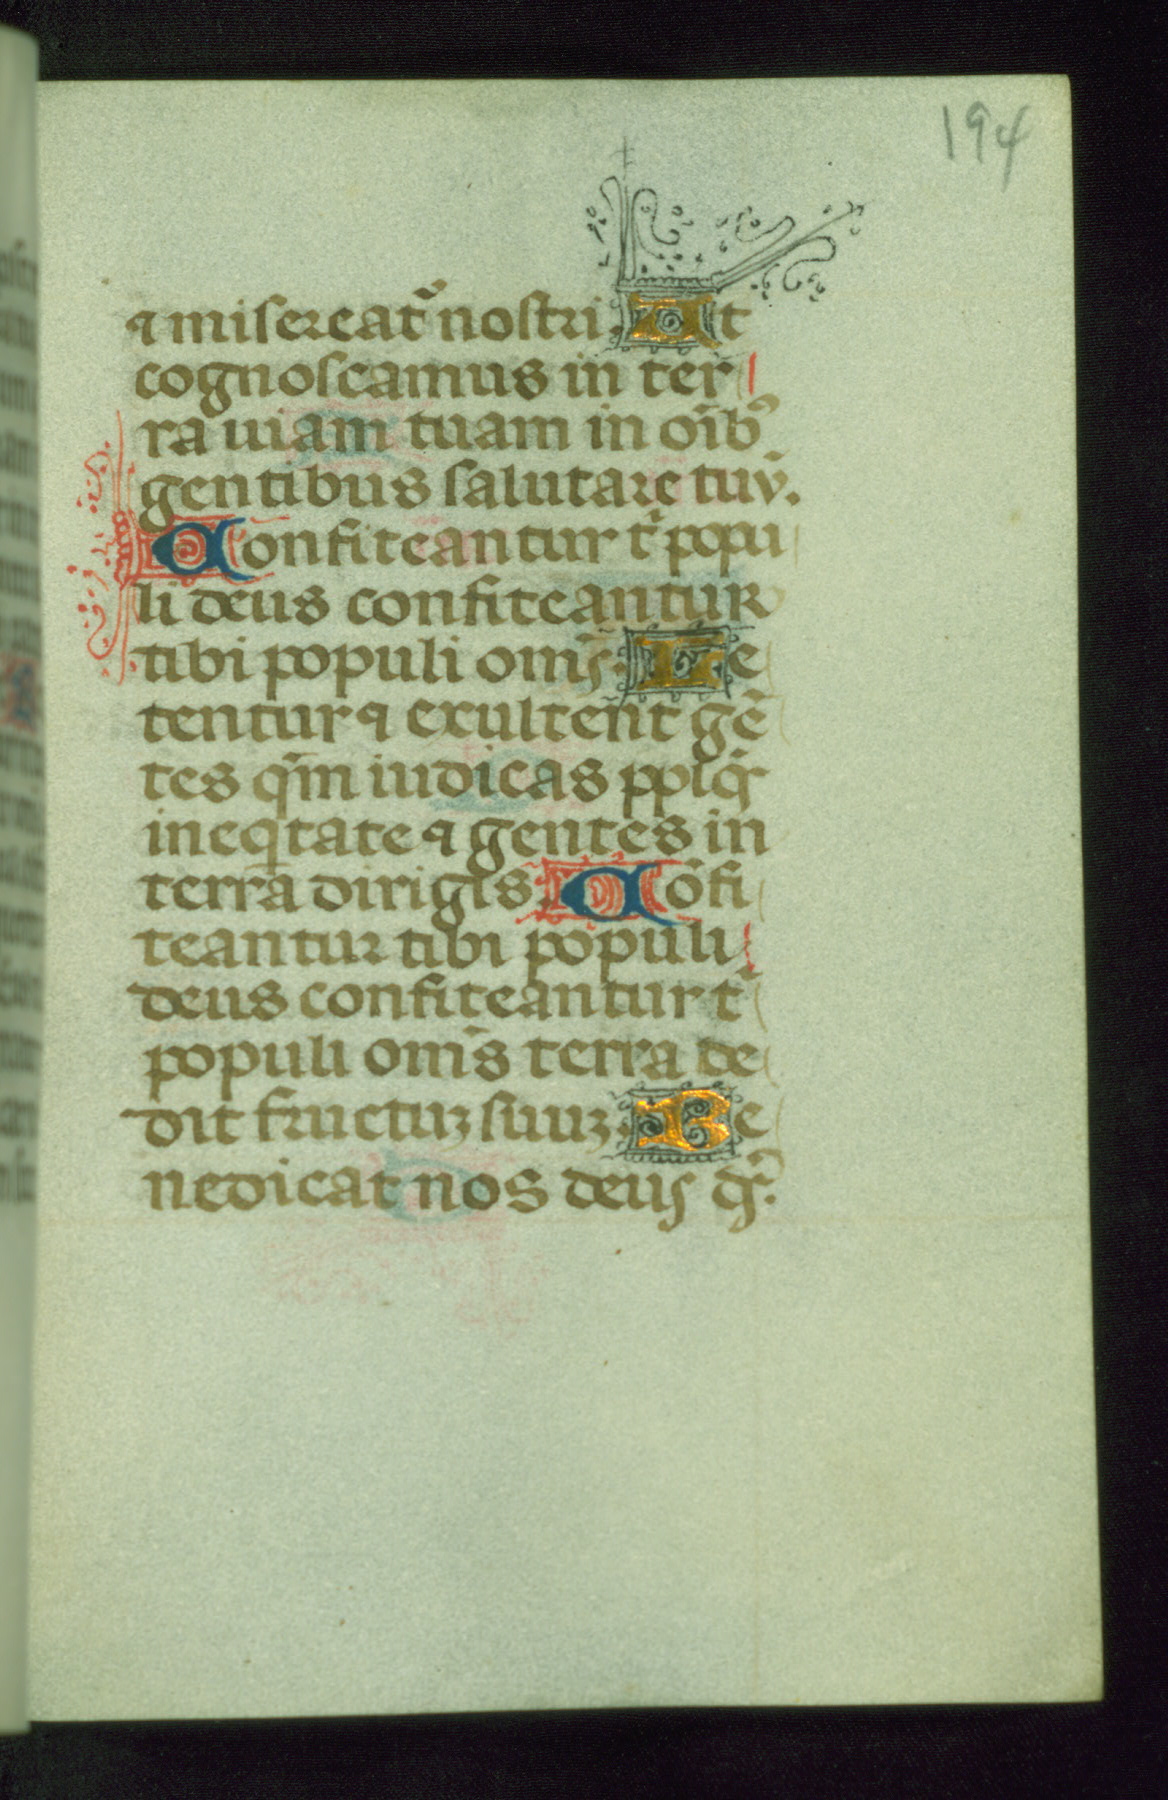 194
⁊ misereat᷑ nostri. Ut
cognoscamus in ter
ra uiam tuam in oı̄bꝰ
gentibus salutare tuū.
Confiteantur t᷑ popu
li deus confiteantur
tibi populi om̄s. Le
tentur ⁊ exulten̄t gē
tes qm̄ iudicas pplos̄
in eq̄tate ⁊ gentes in
terra dirigis. Cōfi
teantur tibi populi
deus confiteantur t᷑
populi om̄s terra de
dit fructuꝫ suuꝫ. Be
nedicat nos deus ds̄.